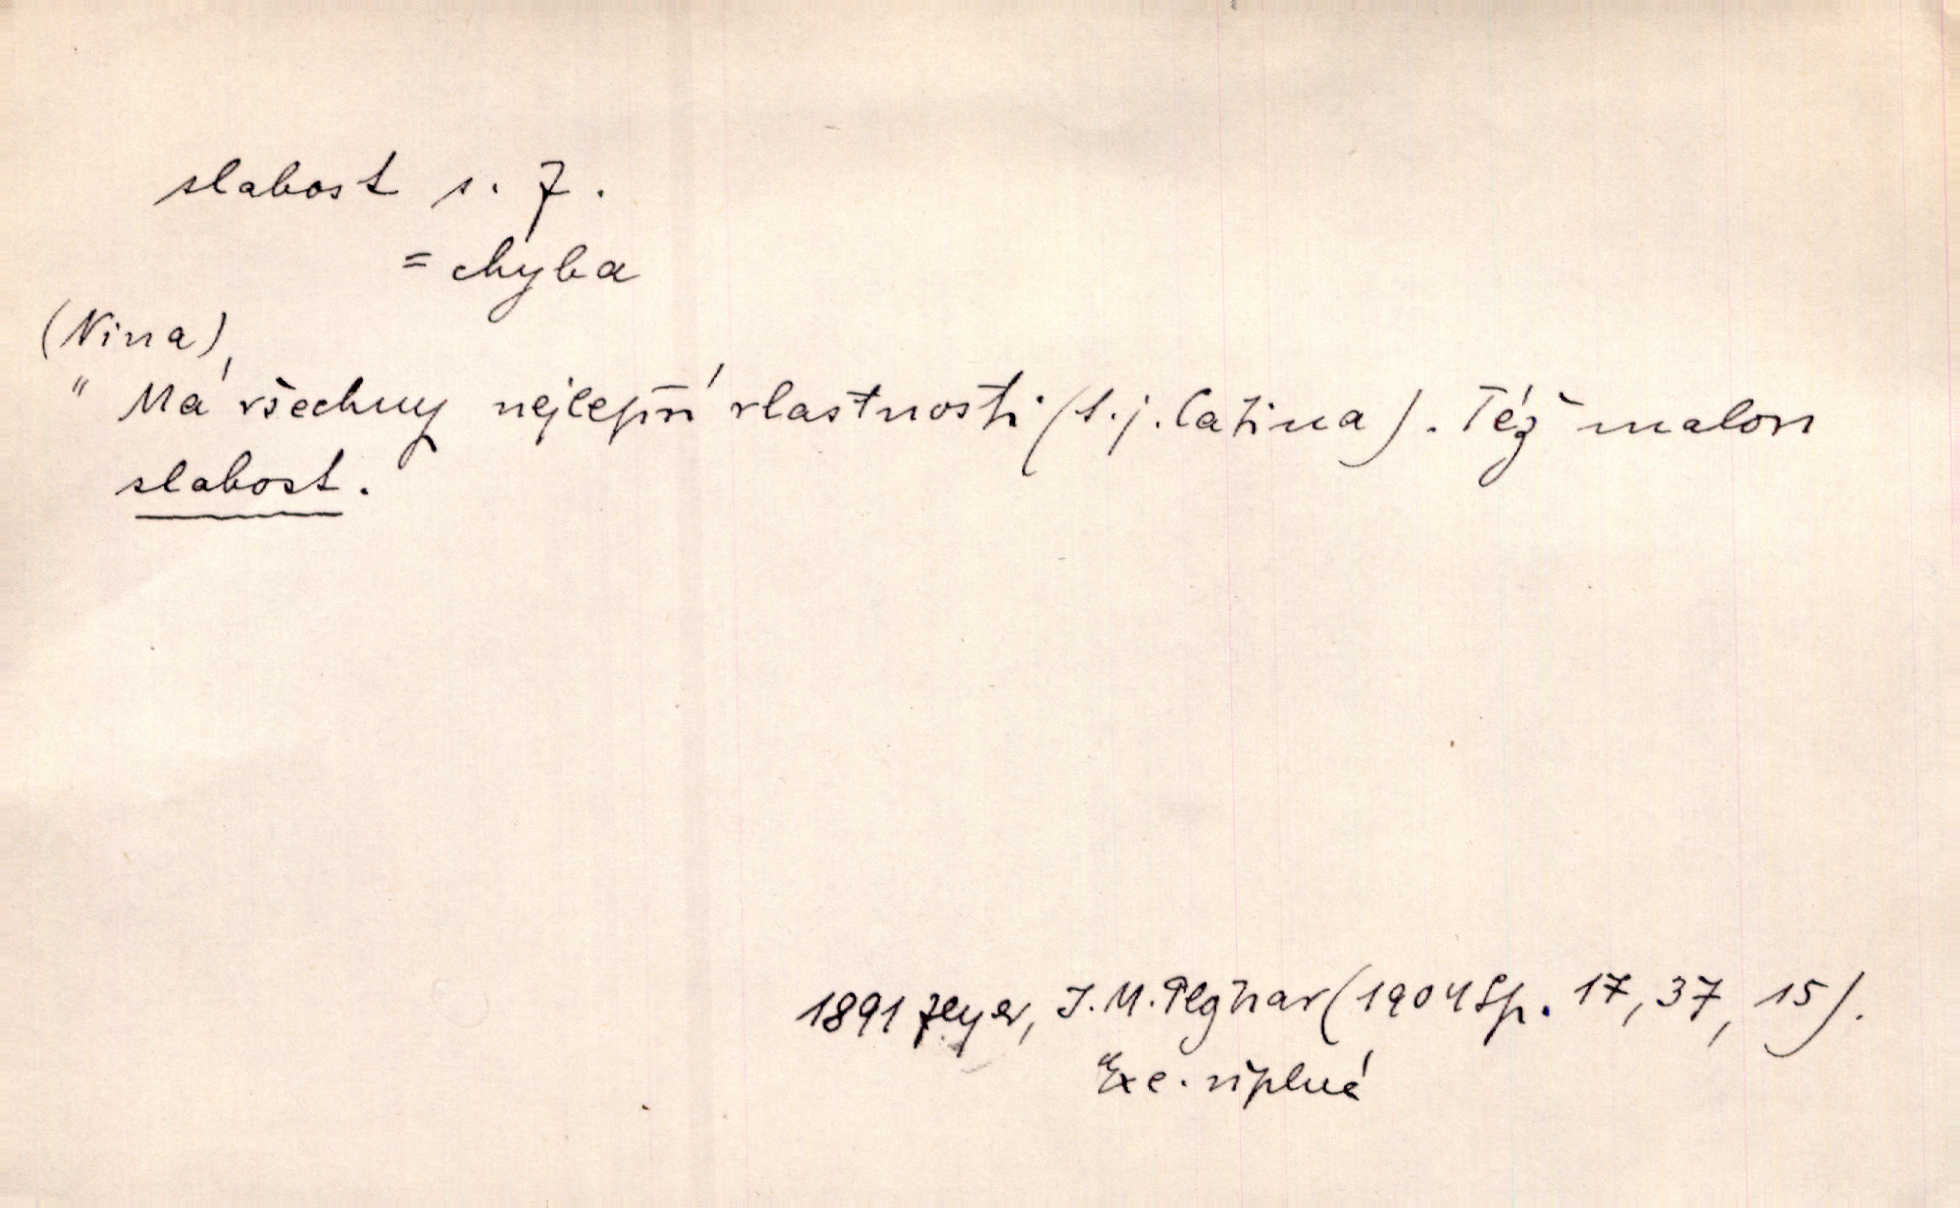 slabost s. f.
= chyba
(Nina)
" Má všechny nejlepší vlastnosti (t. j. Catina). Též malou
slabost.
1891 Zeyer, J. M. Plojhar (1904 Sp. 17, 37, 15).
Exc. úplná